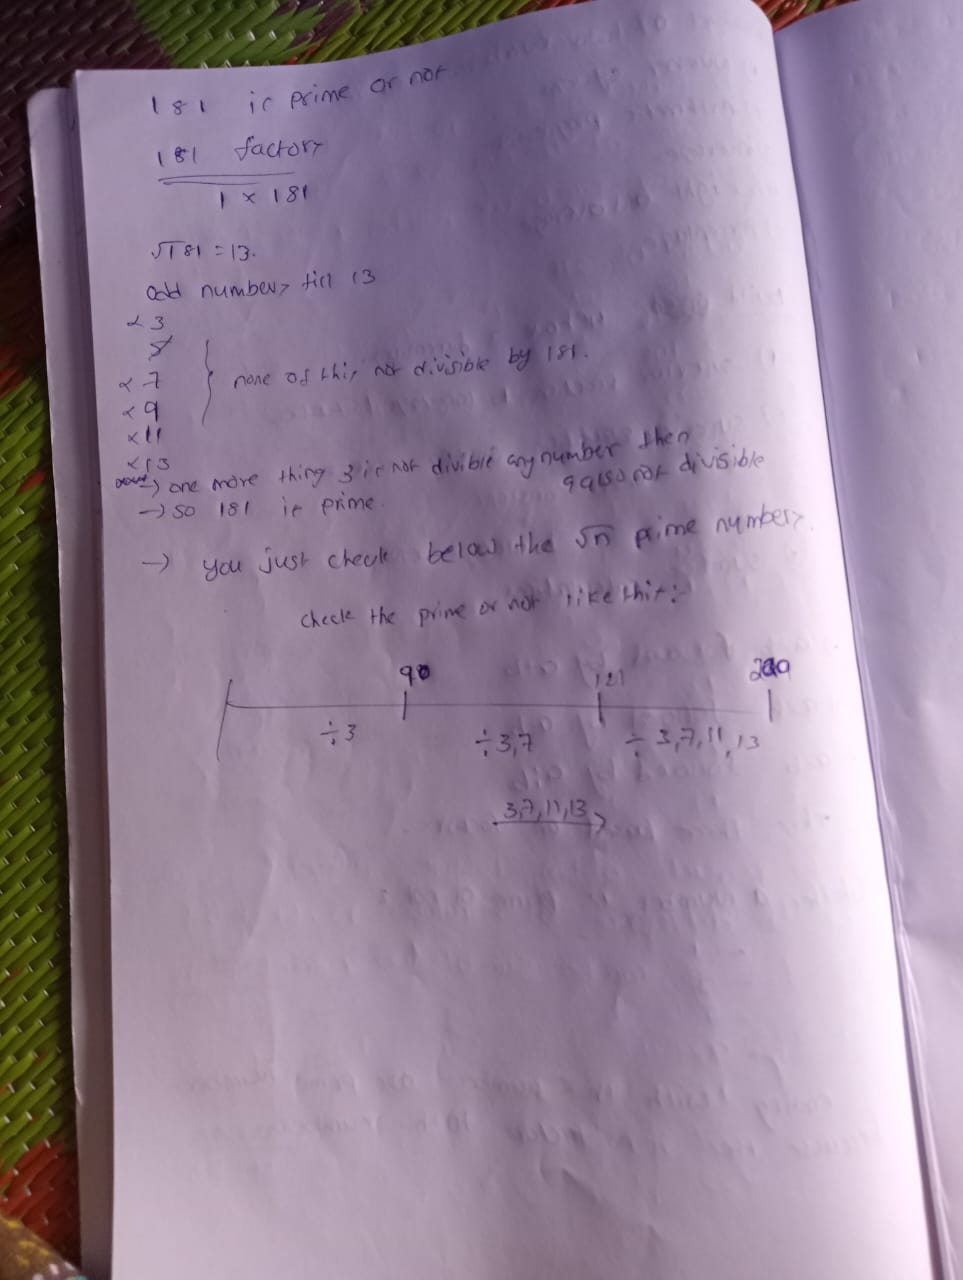 181 is prime or not
181 factors
1 × 181
√181 = 13.
odd numbers till 13
× 3
5
× 7
× 9
× 11
× 13
none of this not divisible by 181.
→ one more thing 3 is not divible any number then
9 also not divisible
→ so 181 is prime.
→ you just check below the √n prime numbers.
check the prime or not like this:-
90 121
÷3 ÷3,7 ÷ 3,7,11,13
3,7,11,13